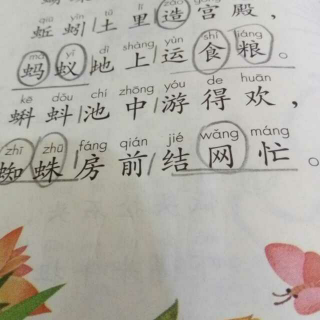 qiū yǐn tǔ lǐ zào gōng diàn
蚯蚓土里造宫殿，
mǎ yǐ dì shàng yùn shí liáng
蚂蚁地上运食粮。
kē dǒu chí zhōng yóu de huān
蝌蚪池中游得欢，
zhī zhū fáng qián jié wǎng máng
蜘蛛房前结网忙。